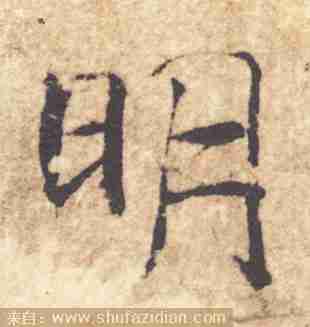 明
来自：www.shufazidian.com